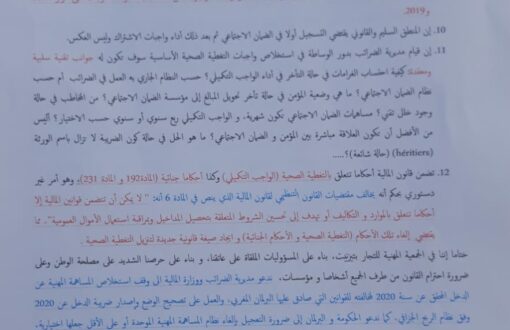 و2019.
10. إن المنطق السليم والقانوني يقتضي التسجيل أولا في الضمان الاجتماعي ثم بعد ذلك أداء واجبات الاشتراك وليس العكس.
11. إن قيام مديرية الضرائب بدور الوساطة في استخلاص واجبات التغطية الصحية الأساسية سوف تكون له جوانب تقنية سلبية
ومعقدة: كيفية احتساب الغرامات في حالة التأخر في أداء الواجب التكميلي؟ حسب النظام الجاري به العمل في الضرائب أم حسب
نظام الضمان الاجتماعي؟ ما هي وضعية المؤمن في حالة تأخر تحويل المبالغ إلى مؤسسة الضمان الاجتماعي؟ من المخاطب في حالة
وجود خلل تقني؟ مساهمات الضمان الاجتماعي تكون شهرية، و الواجب التكميلي ربع سنوي أو سنوي حسب الاختيار؟ أليس
من الأفضل أن تكون العلاقة مباشرة بين المؤمن و الضمان الاجتماعي؟ ما هو الحل في حالة كون الضريبة لا تزال باسم الورثة
(héritiers) (حالة شائعة)؟.....
12. تضمن قانون المالية أحكاما تتعلق بالتغطية الصحية (الواجب التكميلي) وكذا أحكاما جنائية (المادة192 و المادة 231)، وهو أمر غير
دستوري بحكم أنه يخالف مقتضيات القانون التنظيمي لقانون المالية الذي ينص في المادة 6 أنه: " لا يمكن أن تتضمن قوانين المالية إلا
أحكاما تتعلق بالموارد و التكاليف أو تهدف إلى تحسين الشروط المتعلقة بتحصيل المداخيل وبمراقبة استعمال الأموال العمومية". مما
يقتضي إلغاء تلك الأحكام (التغطية الصحية و الأحكام الجنائية) و ايجاد صيغة قانونية جديدة لتنزيل التغطية الصحية .
ختاما إننا في الجمعية المهنية للتجار بتيزنيت، بناء على المسؤوليات الملقاة على عاتقنا، و بناء على حرصنا الشديد على مصلحة الوطن وعلى
ضرورة احترام القانون من طرف الجميع أشخاصا و مؤسسات، ندعو مديرية الضرائب ووزارة المالية الى وقف استخلاص المساهمة المهنية عن
الدخل المحقق عن سنة 2020 لمخالفته للقوانين التي صادق عليها البرلمان المغربي، والعمل على تصحيح الوضع وإصدار ضريبة الدخل عن 2020
وفق نظام الربح الجزافي. كما ندعو الحكومة و البرلمان إلى ضرورة التعجيل بإلغاء نظام المساهمة المهنية الموحدة أو على الأقل جعلها اختيارية.